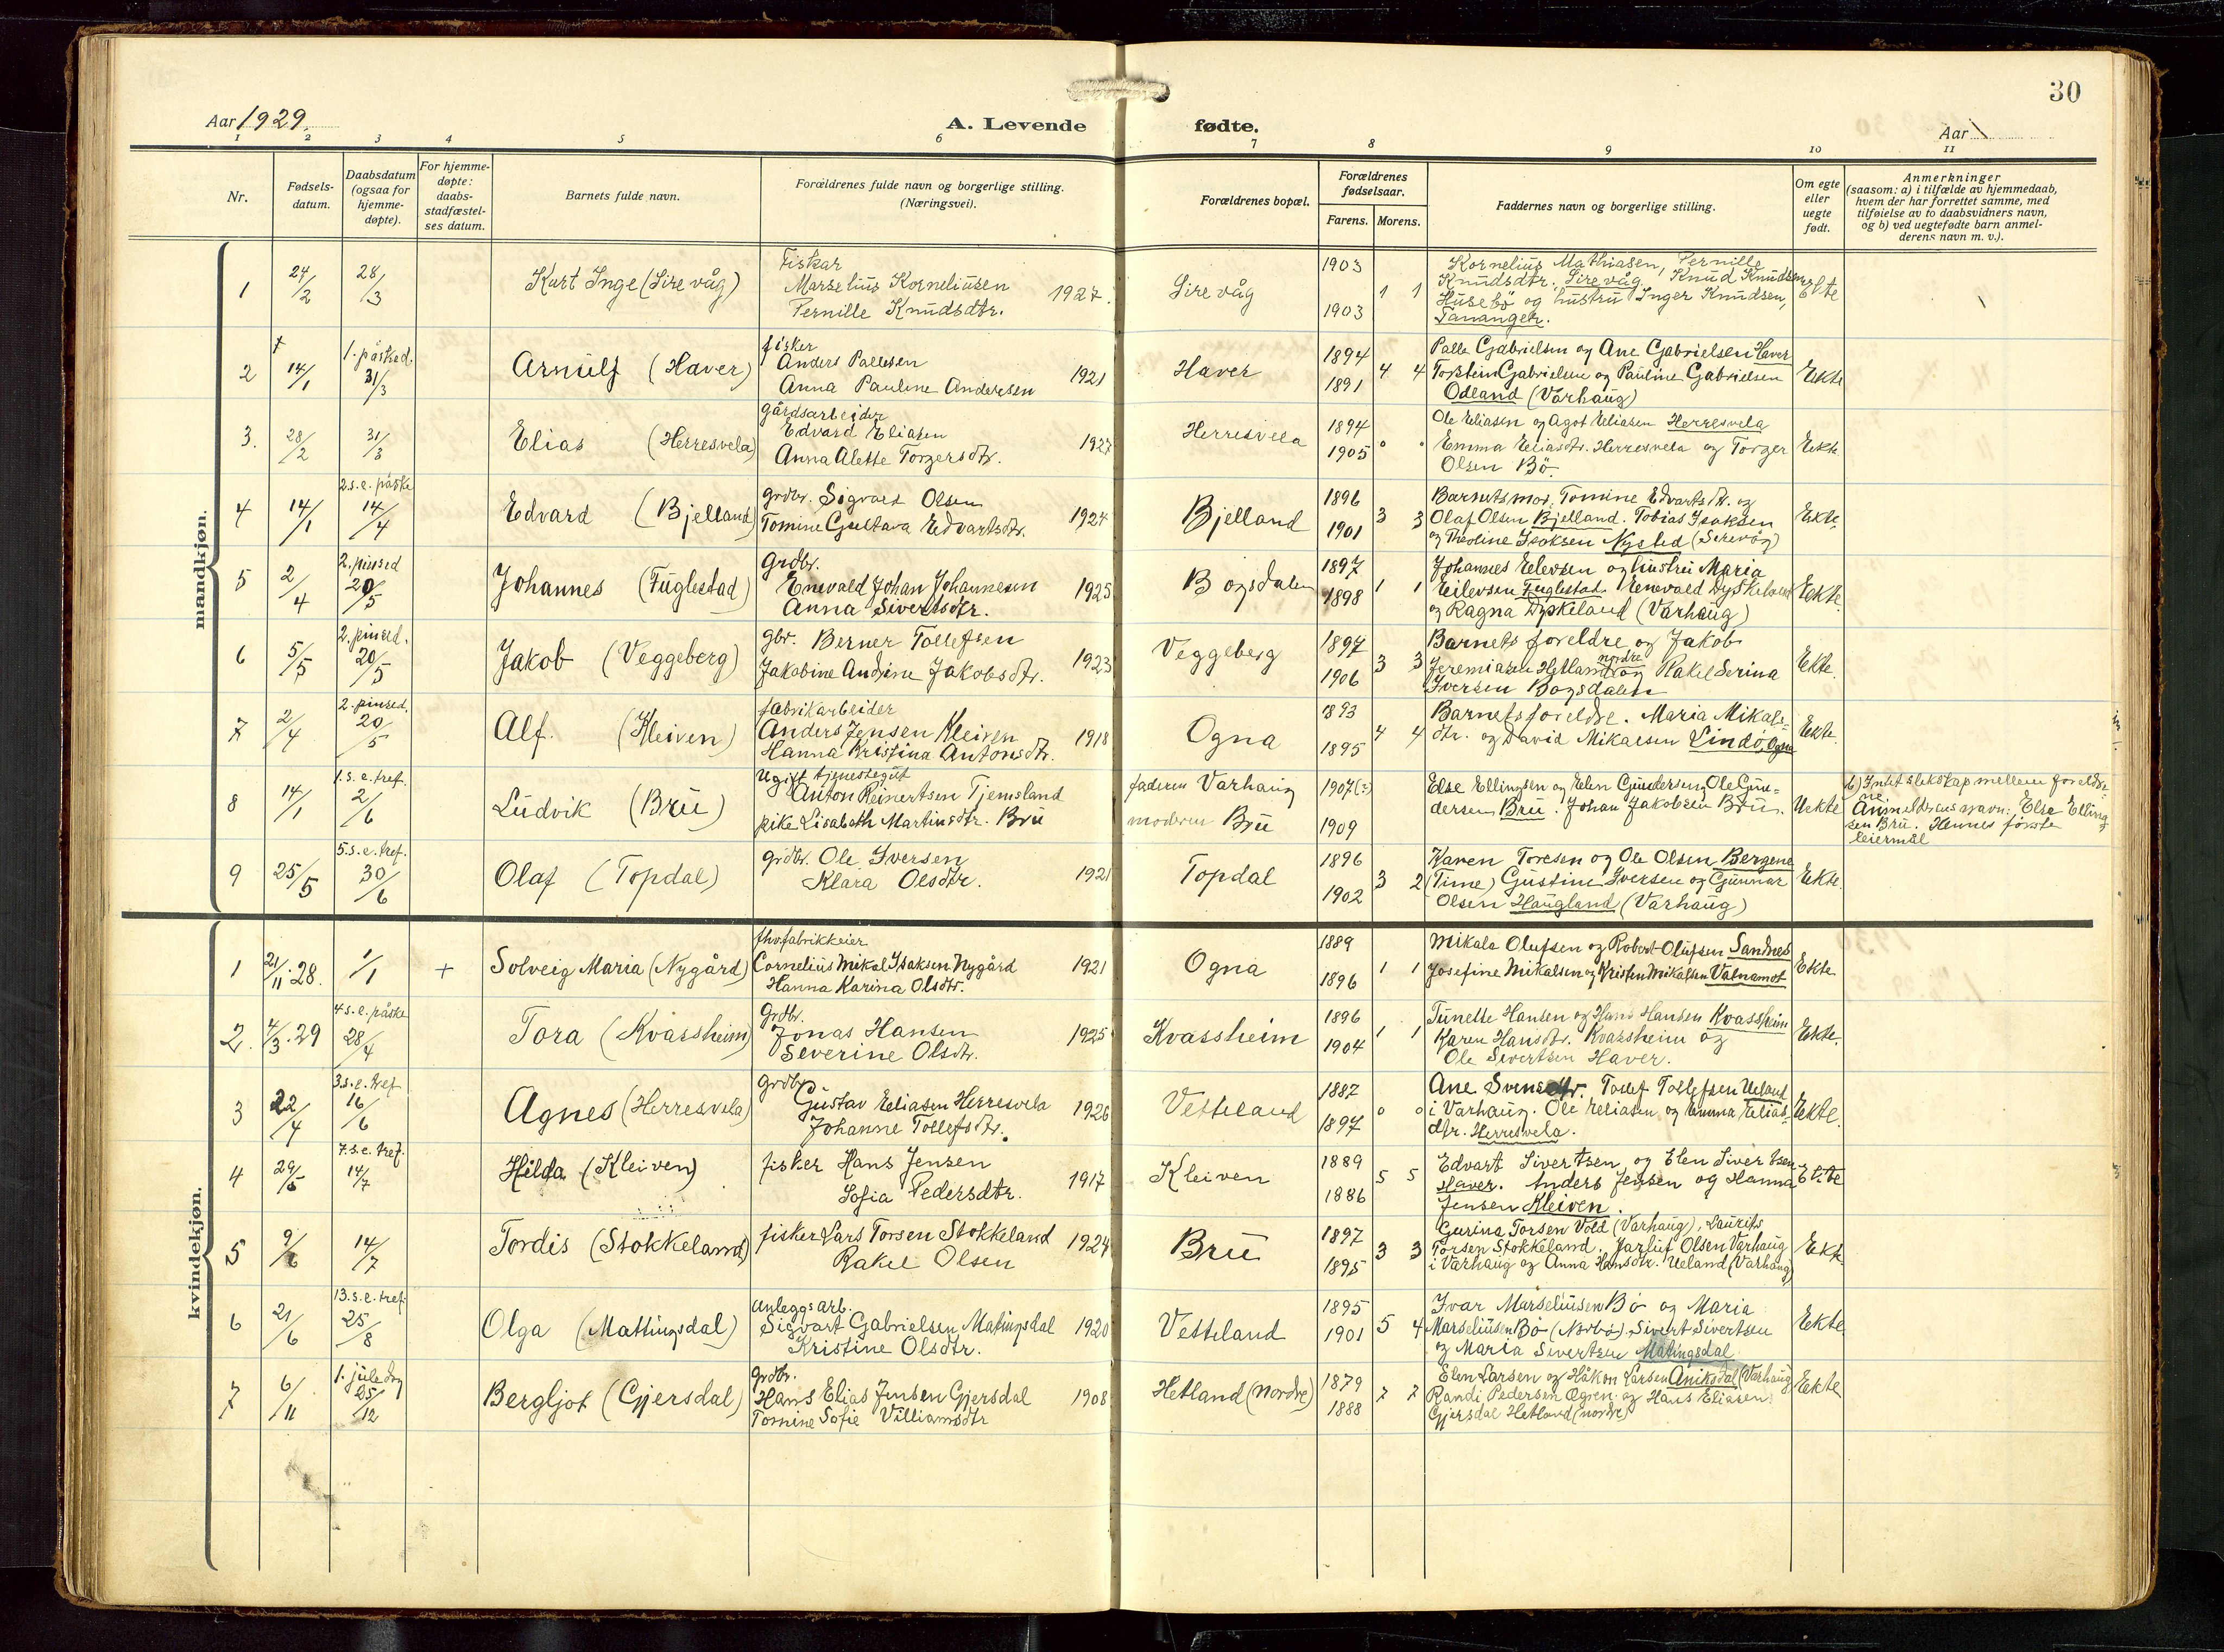 30
Aar 1929.
A. Levende fødte.
Aar
1 2 3 4 5 6 7 8 9 10 11
Nr.
Fødsels-
datum.
Daabsdatum
(ogsaa for
hjemme-
døpte).
For hjemme-
døpte:
daabs-
stadfæstel-
ses datum.
Barnets fulde navn.
Forældrenes fulde navn og borgerlige stilling.
(Næringsvei).
Forældrenes bopæl.
Forældrenes
fødselsaar.
Farens. Morens.
Faddernes navn og borgerlige stilling.
Om egte
eller
uegte
født.
Anmerkninger
(saasom: a) i tilfælde av hjemmedaab,
hvem der har forrettet samme, med
tilføielse av to daabsvidners navn,
og b) ved uegtefødte barn anmel-
derens navn m. v.).
mandkjøn.
1 24/2 28/3 Kurt Inge (Sirevåg)
Fiskar
Marselius Korneliusen
Pernille Knudsdtr.
1927.
Sirevåg
1903
1903
1 1
Kornelius Mathiasen, Pernille
Knudsdtr. Sirevåg, Knud Knudsen
Husebö og hustru Inger Knudsen,
Tananger.
Ekte
2 † 14/1 1. påsked. 31/3 Arnulf (Haver)
fisker
Anders Pallesen
Anna Pauline Andersen
1921
Haver
1894
1891
4 4
Palle Gabrielsen og Ane Gabrielsen Haver
Torstein Gabrielsen og Pauline Gabrielsen
Odland (Varhaug)
Ekte
3. 28/2 31/3 Elias (Herresvela)
gårdsarbeider
Edvard Eliasen
Anna Alette Torgersdtr.
1927
Herresvela
1894
1905
0 0
Ole Eliasen og Agot Eliasen Herresvela
Emma Eliasdtr. Herresvela og Torger
Olsen Bö
Ekte
4 14/1 2. s. e. påske 14/4 Edvard (Bjelland)
grdbr. Sigvart Olsen
Tomine Gustava Edvartsdtr.
1924
Bjelland
1896
1901
3 3
Barnets mor, Tomine Edvartsdtr. og
Olaf Olsen Bjelland. Tobias Isaksen
og Theoline Isaksen Nysted (Sirevåg)
Ekte.
5 2/4 2. pinsed 20/5 Johannes (Fuglestad)
Grdbr.
Enevald Johan Johannesen
Anna Sivertsdtr.
1925
Bogsdalen
1897
1898
1 1
Johannes Eilevsen og hustru Maria
Eilevsen Fuglestad. Enevald Dyskeland
og Ragna Dyskeland (Varhaug)
Ekte.
6 5/5 2. pinsed. 20/5 Jakob (Veggeberg)
gbr. Berner Tollefsen
Jakobine Andrine Jakobsdtr.
1923
Veggeberg
1897
1906
3 3
Barnets foreldre og Jakob
Jeremiasen Hetland nordre og Rakel Serina
Iversen Bogsdalen
Ekte.
7 2/4 2. pinsed. 20/5 Alf. (Kleiven)
fabrikarbeider
Anders Jensen Kleiven
Hanna Kristina Antonsdtr.
1918
Ogna
1893
1895
4 4
Barnets foreldre. Maria Mikals-
dtr. og David Mikalsen Lindö, Ogna
Ekte.
8 14/1 1. s. e. tref. 2/6 Ludvik (Bru)
Ugift tjenestegut
Anton Reinertsen Tjemsland
pike Lisabeth Martinsdtr. Bru
faderen Varhaug
moderen Bru
1907(?)
1909
Else Ellingsen og Elen Gundersen, Ole Gun-
dersen Bru. Johan Jakobsen Bru.
Uekte
b) Intet slekskap mellem foreldre-
ne
Anmelderens navn: Else Elling-
sen Bru. Hennes første
leiermål
9 25/5 5. s. e. tref. 30/6 Olaf (Topdal)
grdbr. Ole Iversen
Klara Olsdtr.
1921
Topdal
1896
1902
3 2
Karen Toresen og Ole Olsen Bergene
(Time) Gustine Iversen og Gunnar
Olsen Haugland (Varhaug)
Ekte.
kvindekjøn.
1 21/11.28. 1/1 + Solveig Maria (Nygård)
fhv. fabrikkeier
Cornelius Mikal Isaksen Nygård
Hanna Karina Olsdtr.
1921
Ogna
1889
1896
1 1
Mikala Olufsen og Robert Olufsen Sandnes
Josefine Mikalsen og Kristen Mikalsen Vatnamot
Ekte
2. 4/3.29 4 s. e. påske 28/4 Tora (Kvassheim)
Grdbr.
Jonas Hansen
Severine Olsdtr.
1925
Kvassheim
1896
1904
1 1
Tunette Hansen og Hans Hansen Kvassheim
Karen Hansdtr. Kvassheim og
Ole Sivertsen Haver.
Ekte.
3 22/4 3. s. e. tref 16/6 Agnes (Herresvela)
grdbr.
Gustav Eliasen Herresvela
Johanne Tollefsdtr.
1926
Vetteland
1887
1897
0 0
Ane Svensdtr. Tollef Tollefsen Ueland
i Varhaug. Ole Eliasen og Emma Elias-
dtr. Herresvela.
Ekte.
4 29/5 7. s. e. tref. 14/7 Hilda (Kleiven)
fisker Hans Jensen
Sofia Pedersdtr.
1917
Kleiven
1889
1886
5 5
Edvart Sivertsen og Elen Sivertsen
Haver. Anders Jensen og Hanna
Jensen Kleiven.
Ekte
5 9/6 14/7 Tordis (Stokkeland)
fisker Lars Torsen Stokkeland
Rakel Olsen
1924
Bru
1897
1895
3 3
Gurina Torsen Vold (Varhaug), Laurits
Torsen Stokkeland. Olsen Varhaug
i Varhaug og Anna Hansdtr. Ueland (Varhaug)
Ekte.
6 21/6 13. s. e. tref. 25/8 Olga (Mattingsdal)
Anleggsarb.
Sigvart Gabrielsen Matingsdal
Kristine Olsdtr.
1920
Vetteland
1895
1901
5 4
Ivar Marseliusen Bö og Maria
Marseliusen Bö (Nærbö) Sivert Sivertsen
og Maria Sivertsen Matingsdal
Ekte
7 6/11 1. juledag 25/12 Bergljot (Gjersdal)
grdbr.
Hans Elias Jensen Gjersdal
Tomine Sofie Villiamsdtr
1908
Hetland (nordre)
1879
1888
7 7
Elen Larsen og Håkon Larsen Aniksdal (Varhaug)
Randi Pedersen Ogna og Hans Eliasen
Gjersdal Hetland (nordre)
Ekte